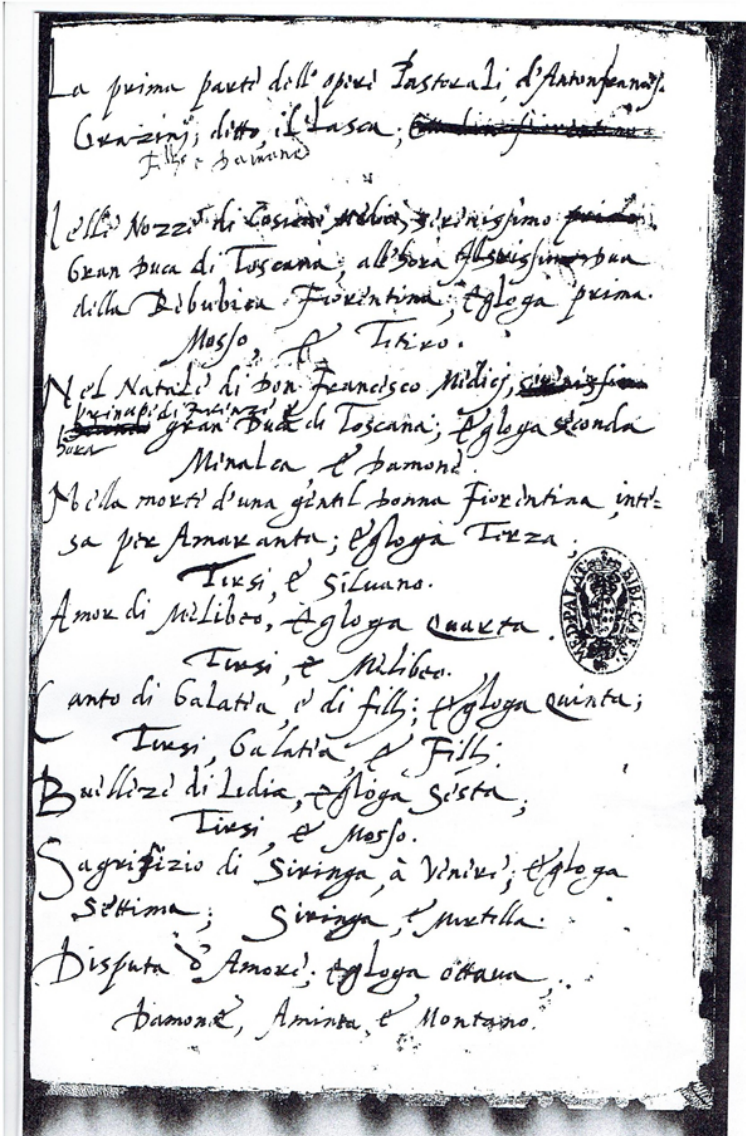 La prima parte dell'opere Pastorali, d'Antonfrances.
Grazini, ditto, il Lasca;
Filli e Damone
Nelle Nozze di Cosimo Medici, serenissimo
Gran Duca di Toscana, all'hora Duca
della Republica Fiorentina; Egloga prima.
Mosso, & Titiro.
Nel Natale di Don Francesco Medici,
Principe di Firenze e
hora gran Duca di Toscana; Egloga seconda
Menalca & Damone.
Nella morte d'una gentil Donna Fiorentina, inte=
sa per Amaranta; Egloga Terza;
Tirsi, & Siluano.
Amor di Melibeo, Egloga Quarta.
Tirsi, & Melibeo.
Canto di Galatea, e di filli; Egloga Quinta;
Tirsi, Galatea, & Filli.
Bellezze di Lidia, Egloga Sesta,
Tirsi, & Mosso.
Sagrifizio di Siringa, à Venere; Egloga
Settima; Siringa, & Mirtilla.
Disputa d'Amore; Egloga ottaua,
Damone, Aminta, & Montano.
MED. PALAT. BIBL. CAES.